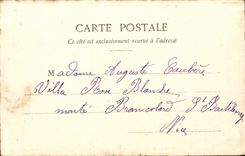 CARTE POSTALE
Ce côté est exclusivement réservé à l'adresse
Madame Auguste Taubère
Villa Rose Blanche
monté Brancolard St Barthélemy
Nice